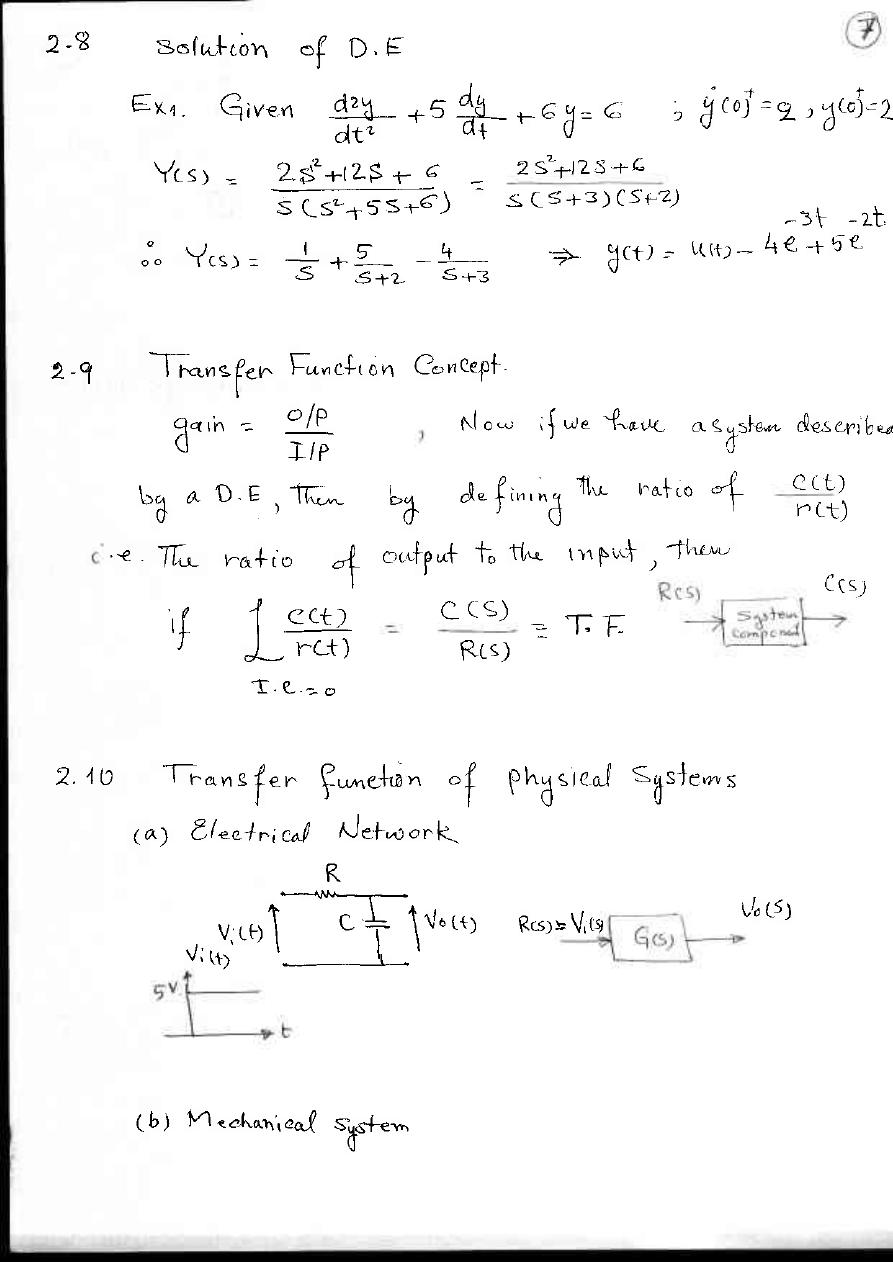 7
2-8 Solution of D.E
Ex1. Given d²y/dt² + 5 dy/dt + 6y = 6 ; ẏ(0)⁺ = 2 , y(0)⁺ = 2
Y(s) = 2S² + 12S + 6 / S(S² + 5S + 6) = 2S² + 12S + 6 / S(S+3)(S+2)
∴ Y(s) = 1/S + 5/S+2 − 4/S+3 ⇒ y(t) = u(t) − 4e^-3t + 5e^-2t
2-9 Transfer Function Concept.
gain = O/P / I/P , Now if we have a system described
by a D.E, Then by defining the ratio of c(t)/r(t)
i.e. The ratio of output to the input, then
if L c(t)/r(t) = C(S)/R(S) = T.F.
I.C. = 0
R(S) System Component C(S)
2.10 Transfer function of physical Systems
(a) Electrical Network
R
Vi(t) C Vo(t) R(s) = Vi(s) G(s) Vo(S)
Vi(t)
5V
t
(b) Mechanical System